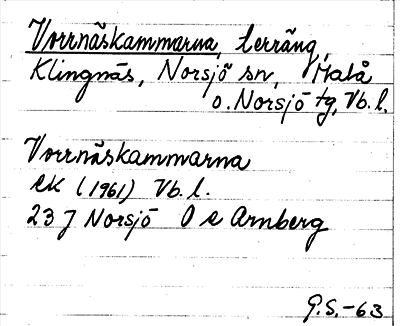 Vorrnäskammarna, terräng,
Klingnäs, Norsjö sn, Malå
o. Norsjö tg, Vb. l.
Vorrnäskammarna
ek (1961) Vb. l.
23 J Norsjö O e Arnberg
G.S.-63